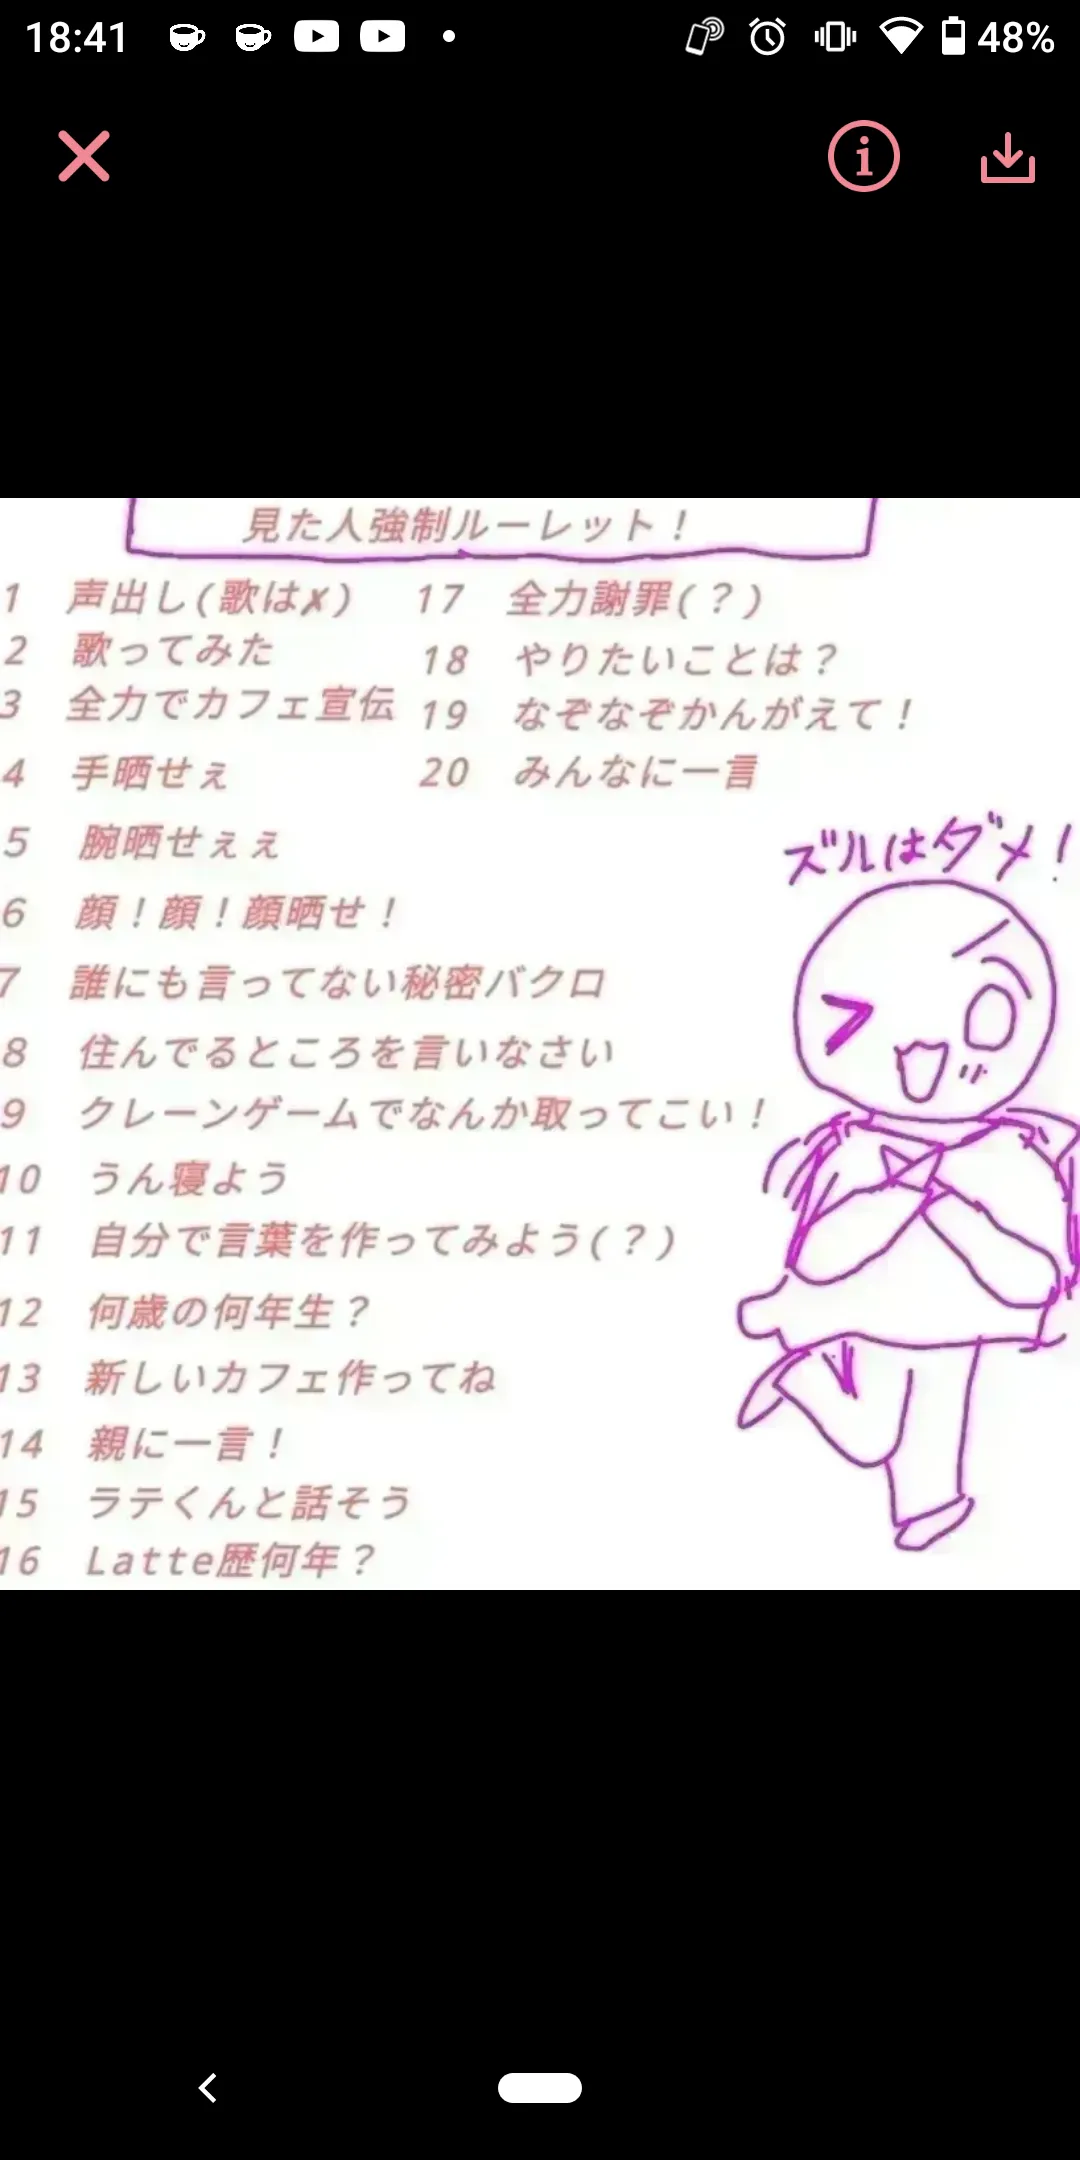 18:41
48%
見た人強制ルーレット！
1 声出し(歌は✗)
2 歌ってみた
3 全力でカフェ宣伝
4 手晒せぇ
5 腕晒せぇぇ
6 顔！顔！顔晒せ！
7 誰にも言ってない秘密バクロ
8 住んでるところを言いなさい
9 クレーンゲームでなんか取ってこい！
10 うん寝よう
11 自分で言葉を作ってみよう(？)
12 何歳の何年生？
13 新しいカフェ作ってね
14 親に一言！
15 ラテくんと話そう
16 Latte歴何年？
17 全力謝罪(？)
18 やりたいことは？
19 なぞなぞかんがえて！
20 みんなに一言
ズルはダメ！